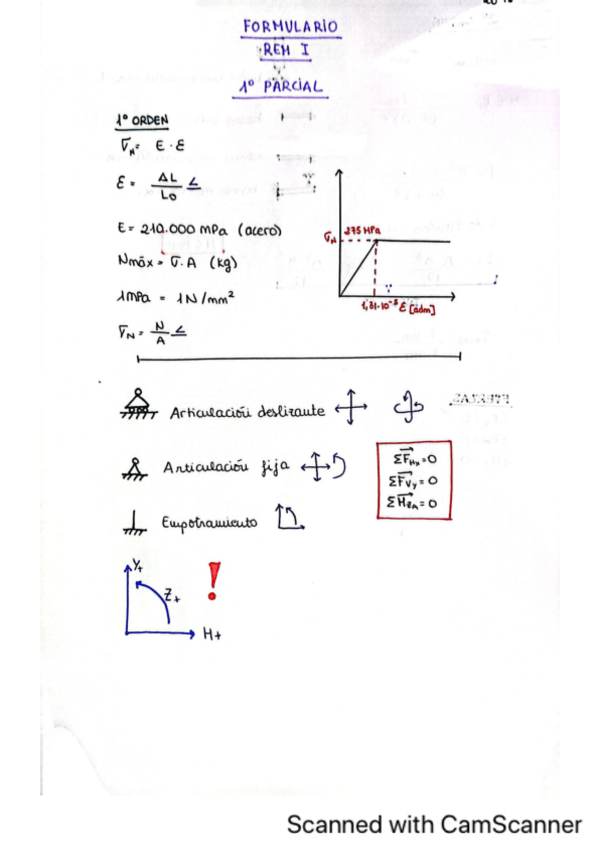 FORMULARIO
REM I
1º PARCIAL
1º ORDEN
σN = E · ε
ε = ΔL / L0
E = 210.000 mPa (acero)
Nmáx = σ · A (kg)
1mPa = 1N/mm²
σN = N / A
σN 275 MPa
1,31·10⁻³ ε [adm]
Articulación deslizante
Articulación fija
ΣFHx = 0
ΣFVy = 0
ΣMZA = 0
Empotramiento
Y+
Z+
!
H+
Scanned with CamScanner